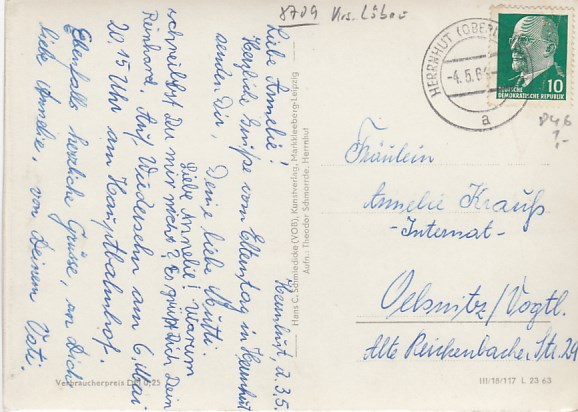 8709 Krs. Löbau
Herrnhut, d. 3.5.
Liebe Annelie!
Herzliche Grüße vom Elterntag in Herrnhut
senden Dir,
Deine liebe Mutti.
Liebe Annelie! Warum
schreibst Du mir nicht? Es grüßt Dich Dein
Reinhard. Auf Wiedersehn am 6. Mai
20.15 Uhr am Hauptbahnhof.
Ebenfalls herzliche Grüße, an Dich
liebe Annelie, von Deinem Vati.
Hans C. Schmiedicke (VOB), Kunstverlag, Markkleeberg-Leipzig
Aufn.: Theodor Schmorrde, Herrnhut
Verbraucherpreis DM 0,25
HERRNHUT (OBERL
-4.5.6
a
10
DEUTSCHE
DEMOKRATISCHE REPUBLIK
Fräulein
Annelie Krauß
- Internat -
Oelsnitz/Vogtl.
Alte Reichenbacher Str. 29
III/18/117 L 23 63